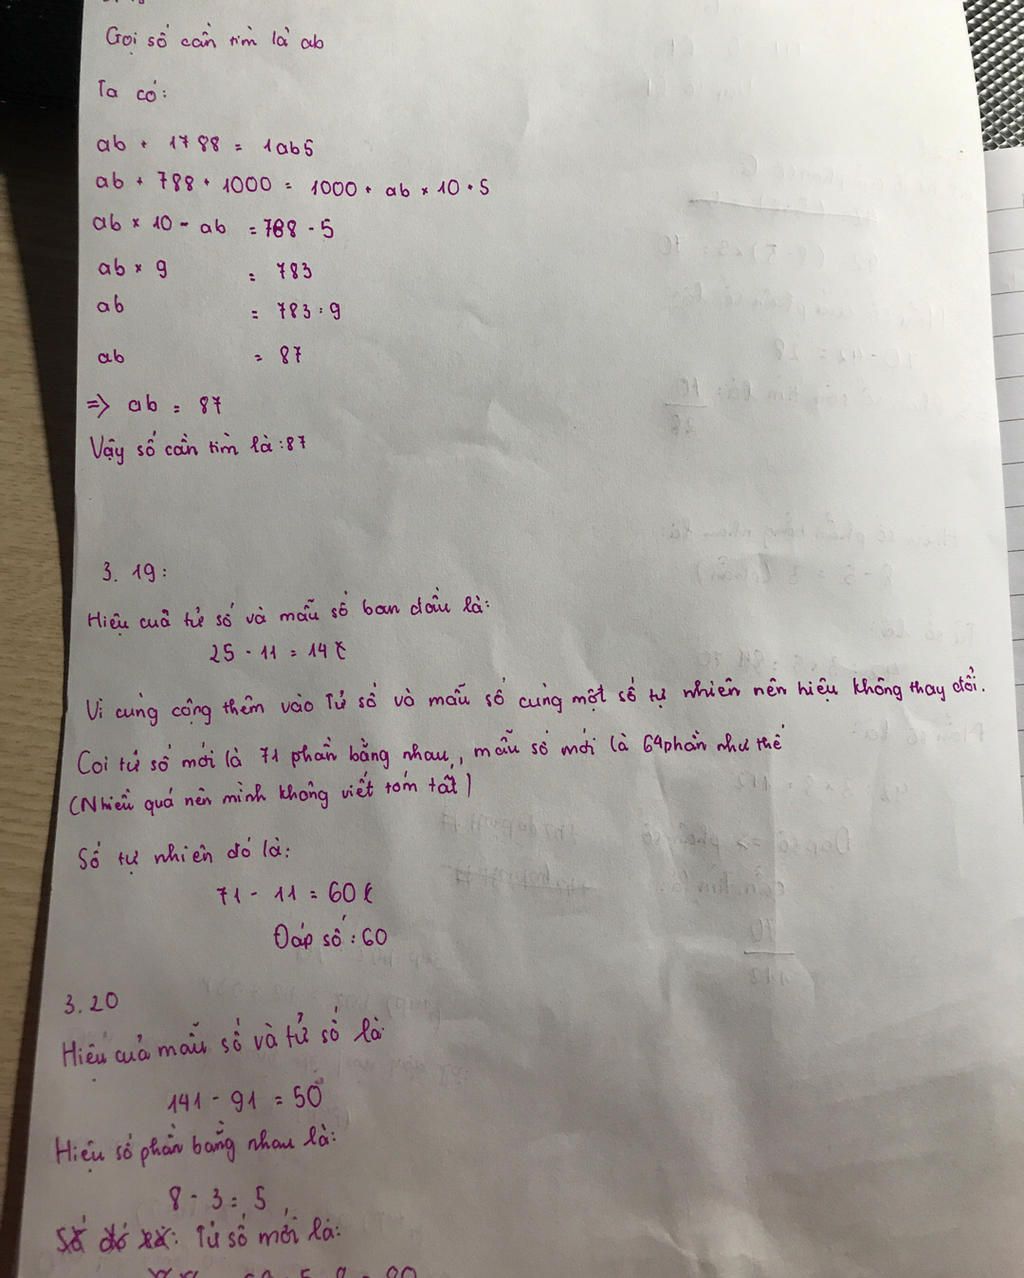 Gọi số cần tìm là ab
Ta có:
ab + 1788 = 1ab5
ab + 788 + 1000 = 1000 + ab × 10 + 5
ab × 10 - ab = 788 - 5
ab × 9 = 783
ab = 783 : 9
ab = 87
=> ab = 87
Vậy số cần tìm là : 87
3. 19:
Hiệu cuả tử số và mẫu số ban đầu là:
25 - 11 = 14
Vì cùng cộng thêm vào Tử số và mẫu số cùng một số tự nhiên nên hiệu không thay đổi.
Coi tử số mới là 71 phần bằng nhau, mẫu số mới là 64 phần như thế
(Nhiều quá nên mình không viết tóm tắt)
Số tự nhiên đó là:
71 - 11 = 60
Đáp số : 60
3. 20
Hiệu của mẫu số và tử số là
141 - 91 = 50
Hiệu số phần bằng nhau là:
8 - 3 = 5
Số đó : Tử số mới là: